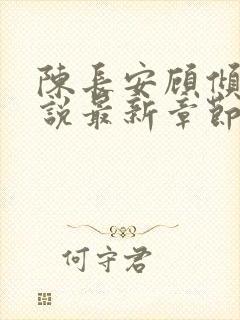 陳長安顧傾
說最新章節
何守君